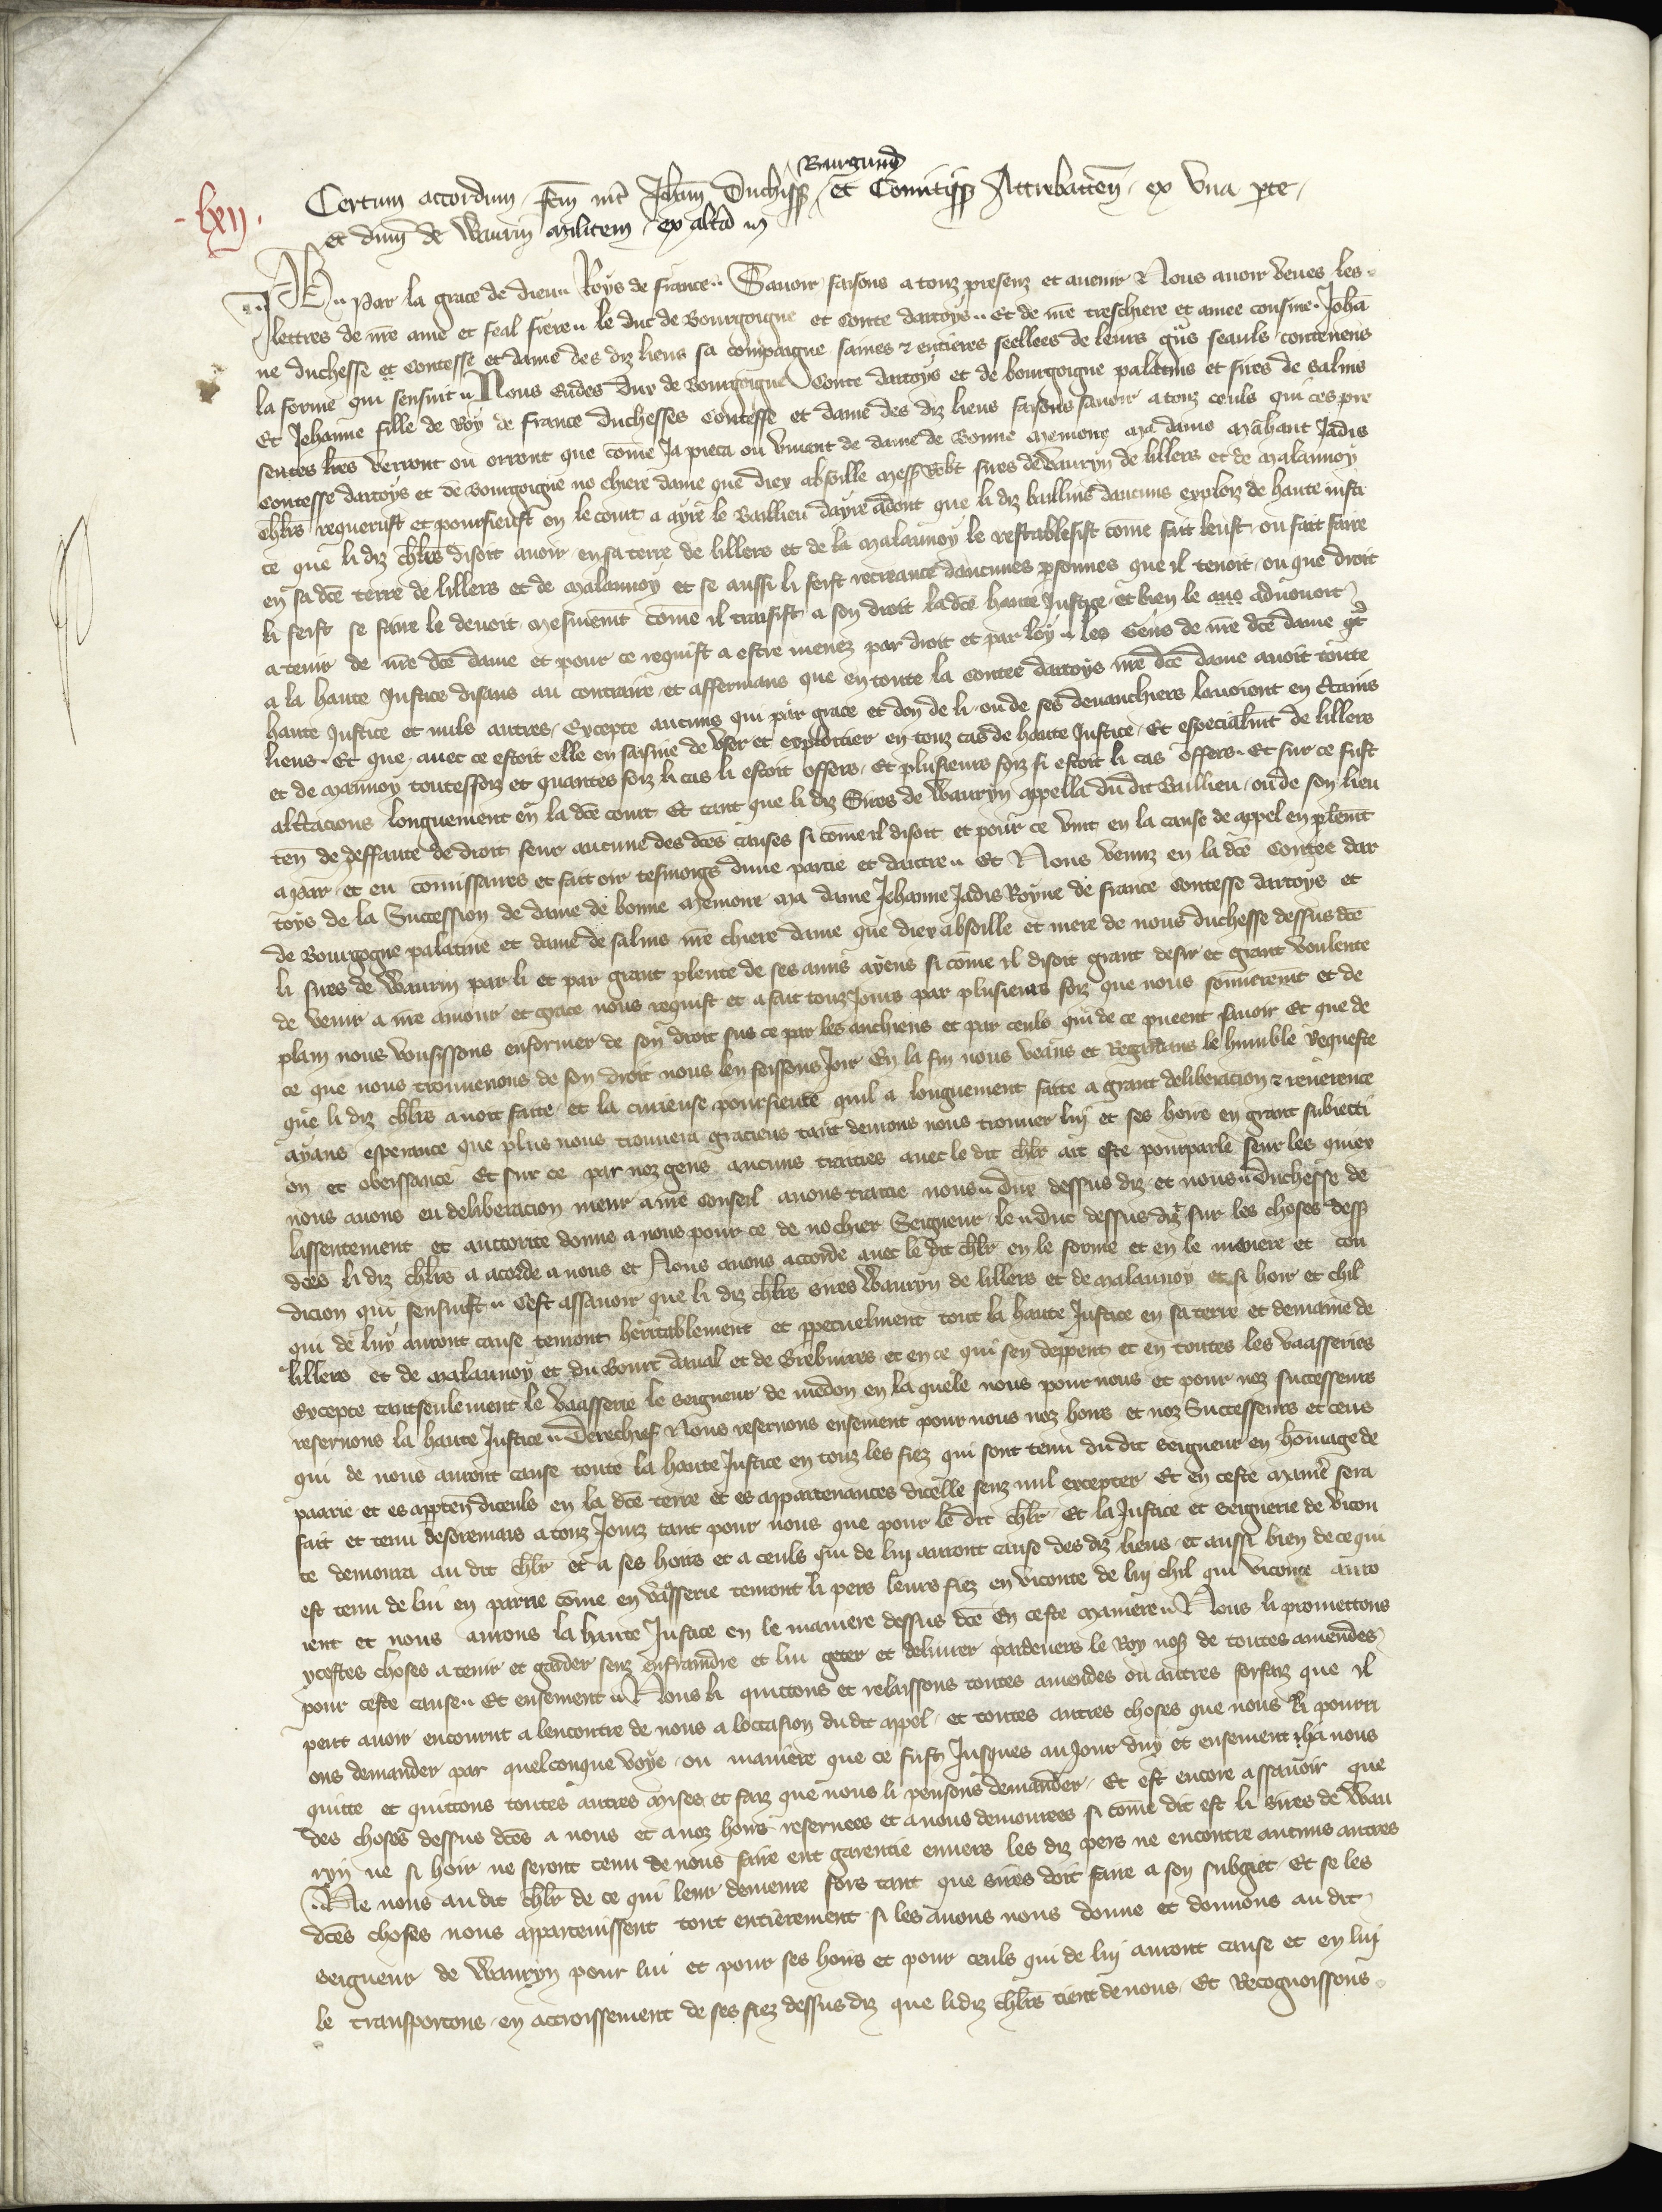 Burgund
Certum accordum fcm int Joham Duchiss et Comitiss Attrebaten ex una pte
-lxij.
et dnm de Waurin militem ex altera
Ph par la grace de dieu Roys de france Savoir faisons a touz presenz et avenir Nous avoir veues les
lettres de nre ame et feal frere le duc de Bourgoigne et Conte dartoys Et de nre treschiere et amee cousine Joha
ne duchesse et Contesse et dame des diz lieus sa compaigne saines et entieres seellees de leurs seauls contenens
la forme qui sensuit Nous Eudes Dux de Bourgoigne Conte dartoys et de bourgoigne palatins et sires de salins
Et Jehanne fille de Roy de france duchesses Contesse et dame des diz lieus faisons savoir a touz ceuls qui ces pre
sentes lres verront ou orront que come Ja pieca ou vivant de dame de bonne memoire ma dame Mahaut Jadis
Contesse dartoys et de bourgoigne no chiere dame que diex absoille mess Robt sires de Wauryn de lillers et de malannoy
chlrs requerust et poursieust en le court a ayre le Baillieu dayre adont que li diz baillius daucuns exploiz de haute justi
ce que li diz chlrs disoit avoir en sa terre de lillers et de la malannoy le restablesist come fait leust ou fait faire
en sa dce terre de lillers et de malannoy et se aussi li feist recreance daucunes psonnes que il tenoit ou que droit
li feist se faire le devoit mesmemt come il traisist a son droit ladce haute Justice et bien le advouoit
a tenir de nre dce dame et pour ce requist a estre menez par droit et par loy les gens de nre dce dame
a la haute Justice disans au contraire et affermans que en toute la Contee dartoys nre dce dame avoit toute
haute Justice et nuls autres excepte aucuns qui par grace et don de li ou de ses devanchiers lavoient en ctains
lieus Et que avec ce estoit elle en saisine de user et exploitier en touz cas de haute Justice Et especialmt de lillers
et de mannoy toutesfoiz et quantes foiz li cas li estoit offers Et plusieurs foiz si estoit li cas offers Et sur ce fust
altcacions longuement en la dce court Et tant que li diz Sires de Wauryn appella du dit Baillieu ou de son lieu
ten de deffaute de droit seur aucune des dces causes si come il disoit et pour ce vint en la cause de appel en plemt
apar et eu comissaires et fait oir tesmoigs dune partie et dautre Et Nous venuz en la dce Contee dar
toys de la Succession de dame de bonne memoire ma dame Jehanne Jadis Royne de france contesse dartoys et
de Bourgogne palatine et dame de salins nre chiere dame que diex absoille et mere de nous duchesse dessus dce
li sires de Waurin par li et par grant plente de ses amis ayens si come il disoit grant desir et grant voulente
de venir a nre amour et grace nous requist et a fait touz Jours par plusieurs foiz que nous et de
plain nous vousissons enformer de son droit sus ce par les anchiens et par ceuls qui de ce pueent savoir Et que de
ce que nous trouverons de son droit nous len feissons Joir En la fin nous veans et Regardans le humble Requeste
que li diz chlrs avoit faite et la curieuse poursieute quil a longuement faite a grant deliberacion et reverence
ayans esperance que plus nous trouvera gracieus tant devrons nous trouver lui et ses hoirs en grant subiecti
on et obeissance Et sur ce par noz gens aucuns traities avec le dit chlr ait este pourparle seur les quiex
nous avons eu deliberacion meur a nre Conseil avons traitie nous Dux dessus diz et nous Duchesse de
lassentement et auctorite donne a nous pour ce de no chier Seigneur le Duc dessus diz sur les choses dess
dces li diz chlrs a acorde a nous et Nous avons accorde avec le dit chlr en le forme et en le maniere et con
dicion qui sensuist Cest assavoir que li diz chlrs sires Wauryn de lillers et de malannoy et si hoir et chil
qui de luy auront cause tenront heritablement et ppetuelment tout la haute Justice en sa terre et demaine de
lillers et de malannoy et du bourc daval et de et en ce qui sen deppent et en toutes les vaasseries
excepte tantseulement le vaasserie le seigneur de medon en laquele nous pour nous et pour noz successeurs
reservons la haute Justice Derechief Nous reservons ensement pour nous noz hoirs et noz Successeurs et ceus
qui de nous auront cause toute la haute Justice en touz les fiez qui sont tenu du dit seigneur en homage de
paarie et es appten diceuls en la dce terre et es appartenances dicelle senz nul excepter Et en ceste manie sera
fait et tenu desoremais a touz Jourz tant pour nous que pour le dit chlr Et la Justice et seignerie de vicon
te demoura au dit chlr et a ses hoirs et a ceuls qui de lui auront cause des diz lieus et aussi bien de ce qui
est tenu de lui en parrie come en vasserie tenront li pers leurs fiez en viconte de lui chil qui viconte auro
ient et nous aurons la haute Justace en le maniere dessus dce En ceste maniere Nous li promettons
ycestes choses a tenir et garder senz enfraindre et lui geter et delivrer pardevers le Roy noss de toutes amendes
pour ceste cause Et ensement Nous li quittons et relaissons toutes amendes ou autres forfaiz que il
peut avoir encourut a lencontre de nous a loccasion du dit appel et toutes autres choses que nous li pourri
ons demander par quelconque voye ou maniere que ce fust Jusques au Jour duy et ensement il ha nous
quitte et quittons toutes autres mises et faiz que nous li peusons demander Et est encore assavoir que
des choses dessus dces a nous et a noz hoirs reservees et a nous demourees si come dit est li sires de Wau
ryn ne si hoir ne seront tenu de nous faire ent garentie envers les diz pers ne encontre aucuns autres
Ne nous au dit chlr de ce qui leur demeure fors tant que sires doit faire a son subgiet Et se les
dces choses nous appartenissent tout entierement si les avons nous donne et donnons au dit
seigneur de Wauryn pour lui et pour ses hoirs et pour ceuls qui de lui auront cause et en lui
le transportons en accroissement de ses fiez dessus diz que lidiz chlrs tient de nous Et Recognoissons